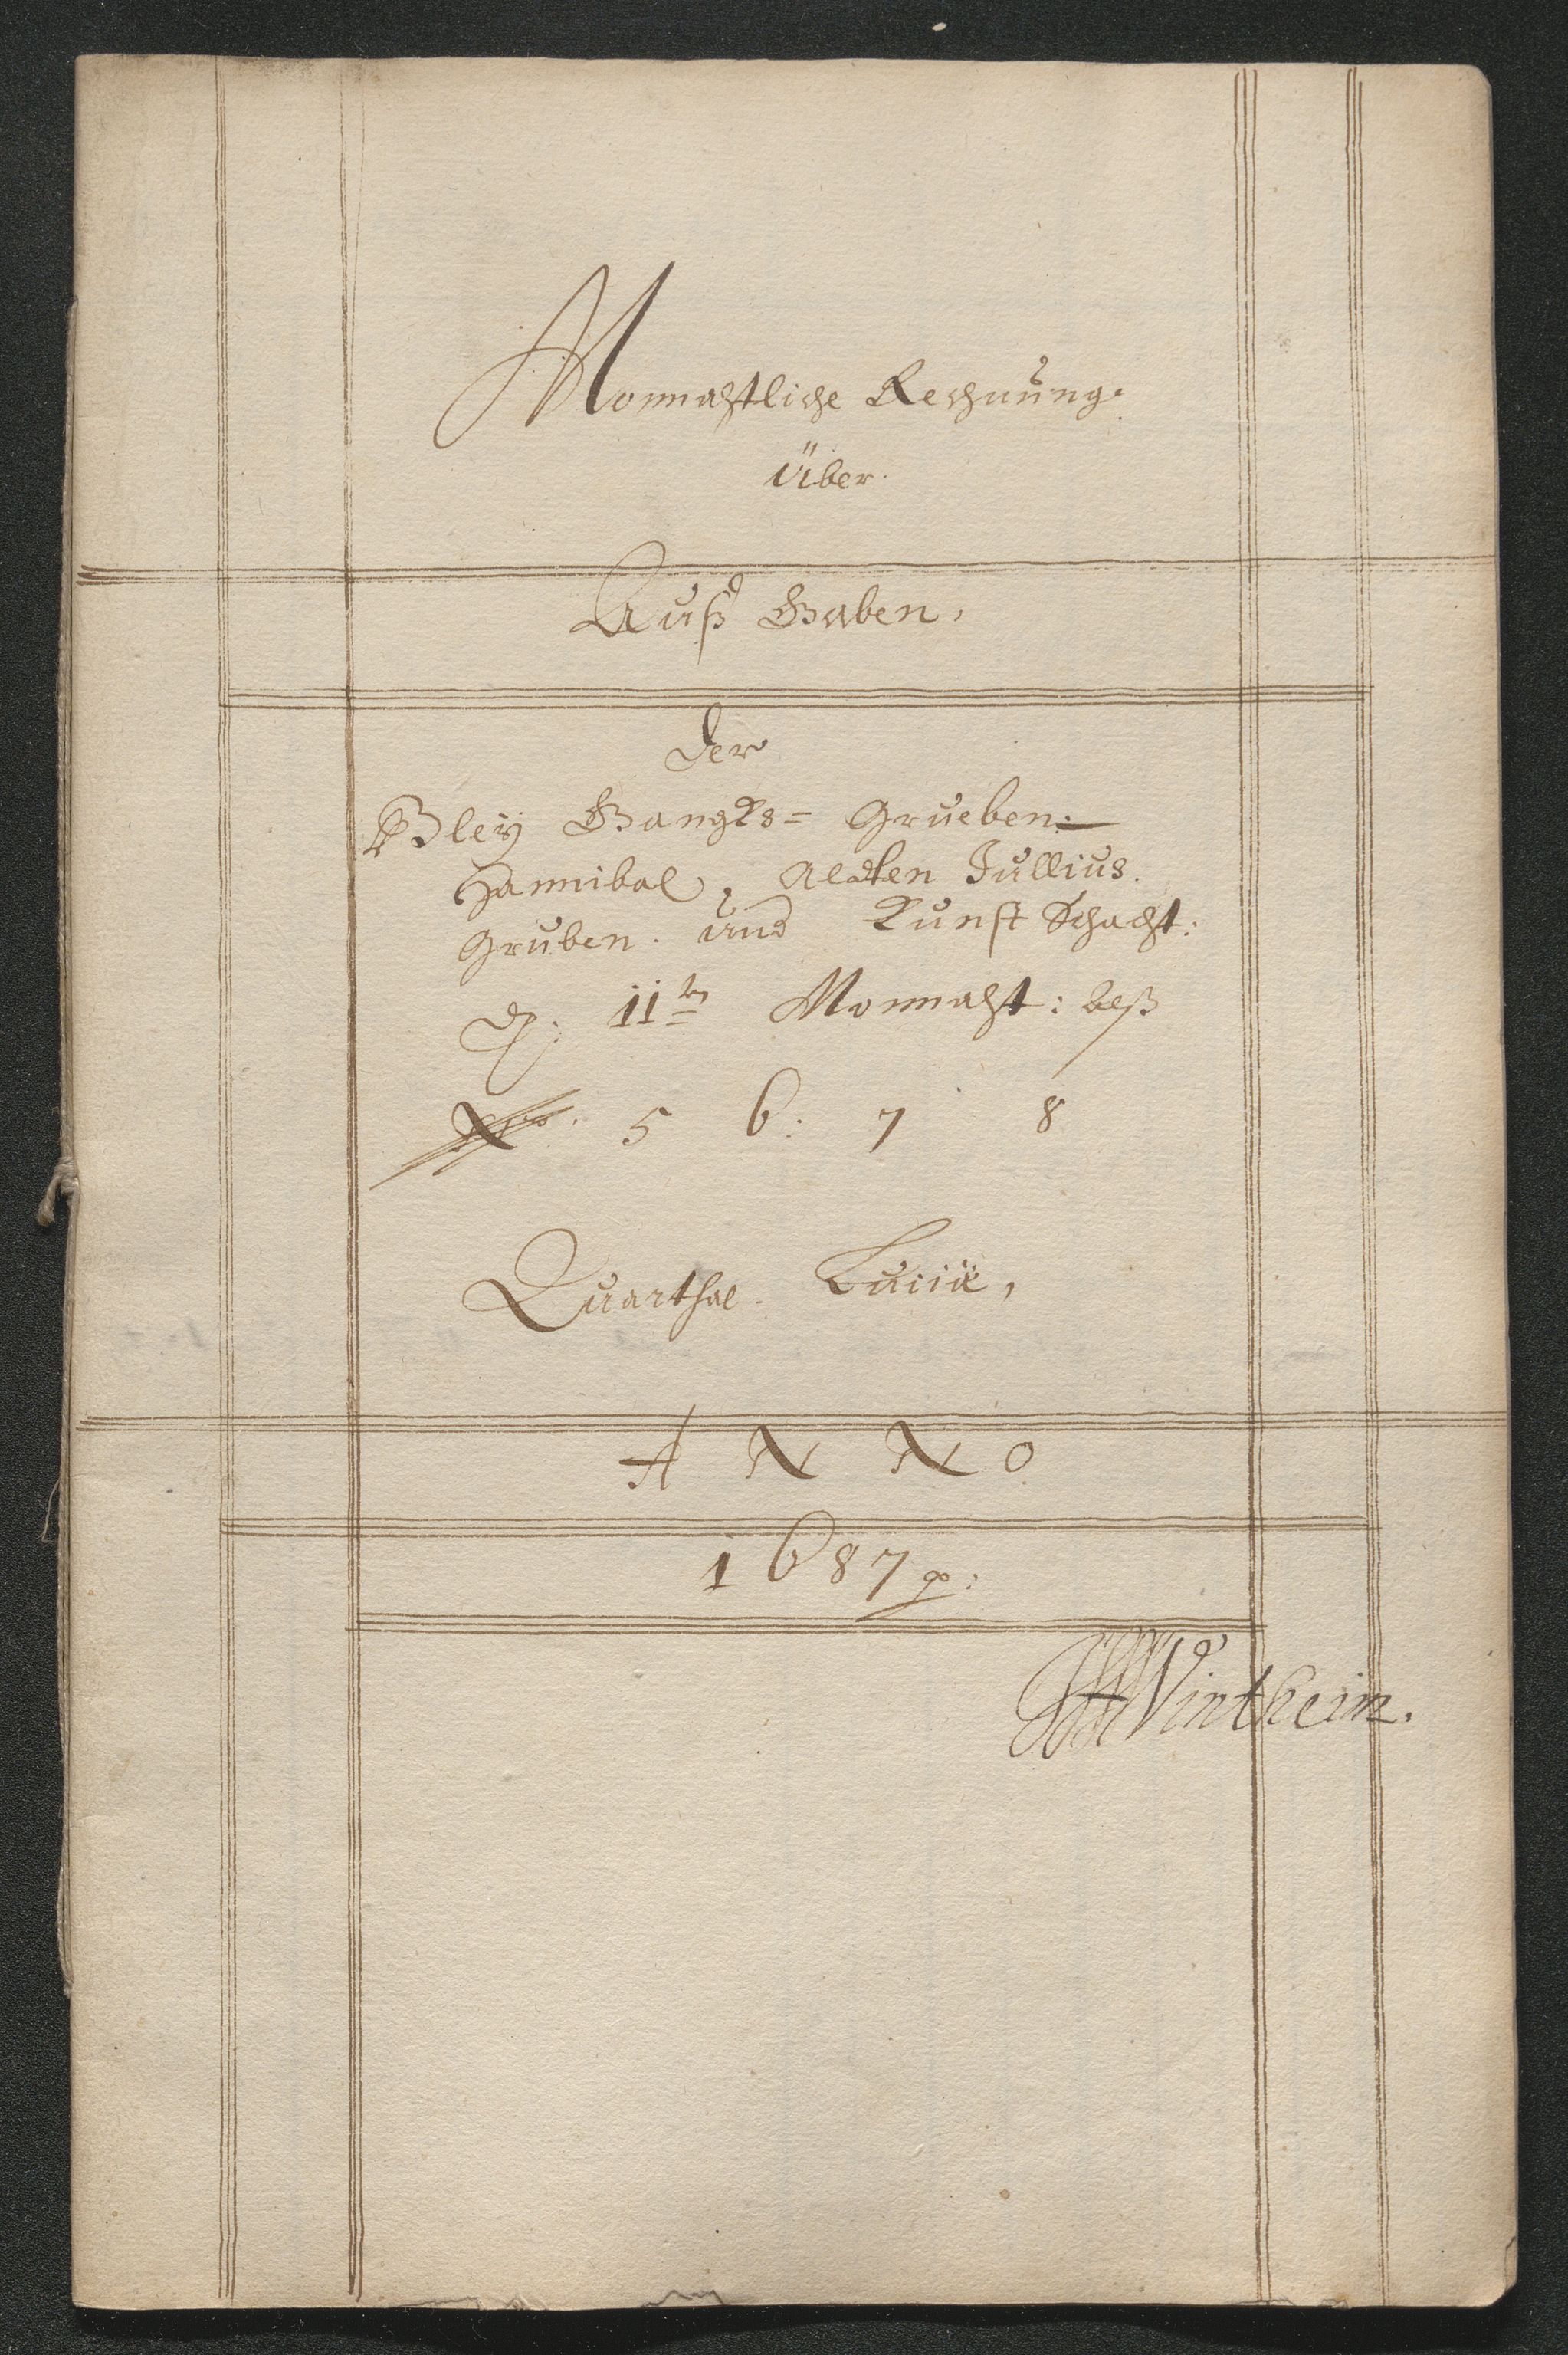 Monnahtliche Rechnung.
Über.
Auß Gaben,
Der
Bley Gangks= Grueben.
Hannibal, Alden Jullius.
Gruben. und Kunst Schacht:
11ten Monnaht: deß
No. 5 6: 7 8
Quarthal. Luciä,
ANNO
1687
Wintheim.